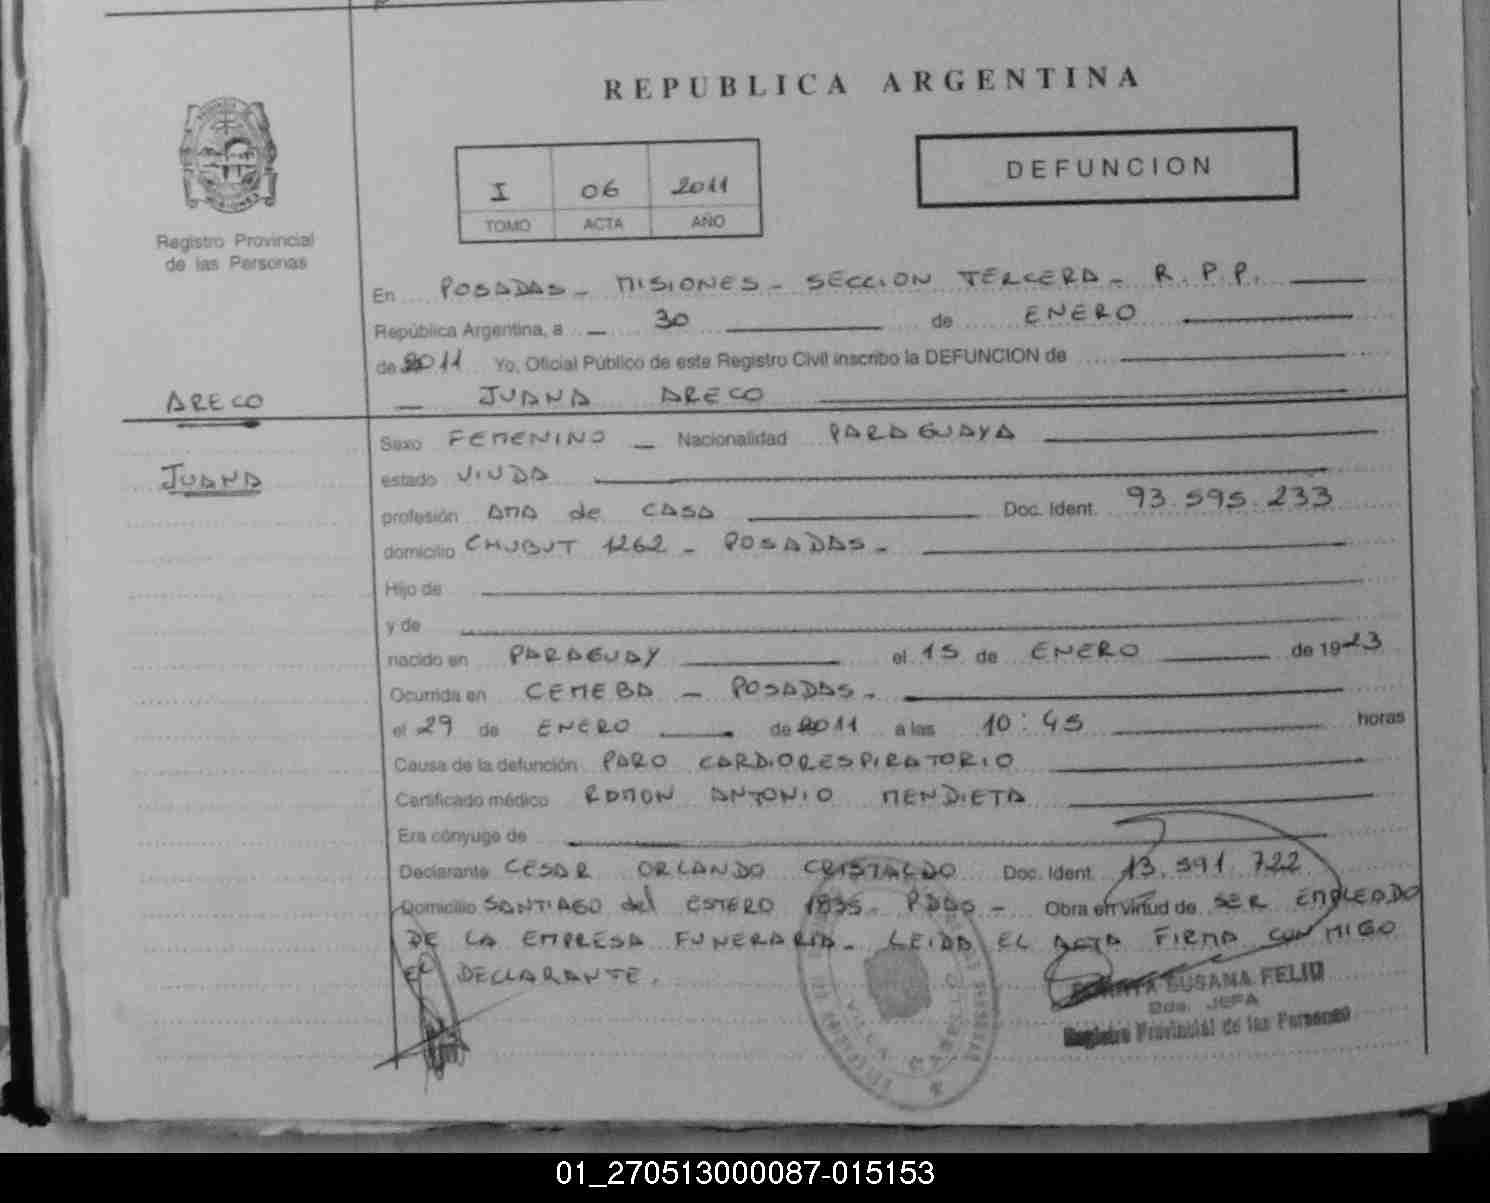 REPUBLICA ARGENTINA
DEFUNCION
I 06 2011
TOMO ACTA AÑO
Registro Provincial
de las Personas
En POSADAS - MISIONES - SECCION TERCERA - R.P.P.
República Argentina, a 30 de ENERO
de 2011 Yo, Oficial Público de este Registro Civil inscribo la DEFUNCION de
ARECO
JUANA ARECO
Sexo FEMENINO Nacionalidad PARAGUAYA
JUANA
estado VIUDA
profesión AMA de CASA Doc. Ident. 93.595.233
domicilio CHUBUT 1262 - POSADAS -
Hijo de
y de
nacido en PARAGUAY el 15 de ENERO de 1923
Ocurrida en CEMEBA - POSADAS -
el 29 de ENERO de 2011 a las 10:45 horas
Causa de la defunción PARO CARDIORESPIRATORIO
Certificado médico RAMON ANTONIO MENDIETA
Era cónyuge de
Declarante CESAR ORLANDO CRISTALDO Doc. Ident. 13.591.722
Domicilio SANTIAGO del ESTERO 1835 - PDAS - Obra en virtud de SER EMPLEADO
DE LA EMPRESA FUNERARIA - LEIDA EL ACTA FIRMA CONMIGO
EL DECLARANTE.
SUSANA FELIU
2da. JEFA
Registro Provincial de las Personas
VILLA CABELLO
01_270513000087-015153